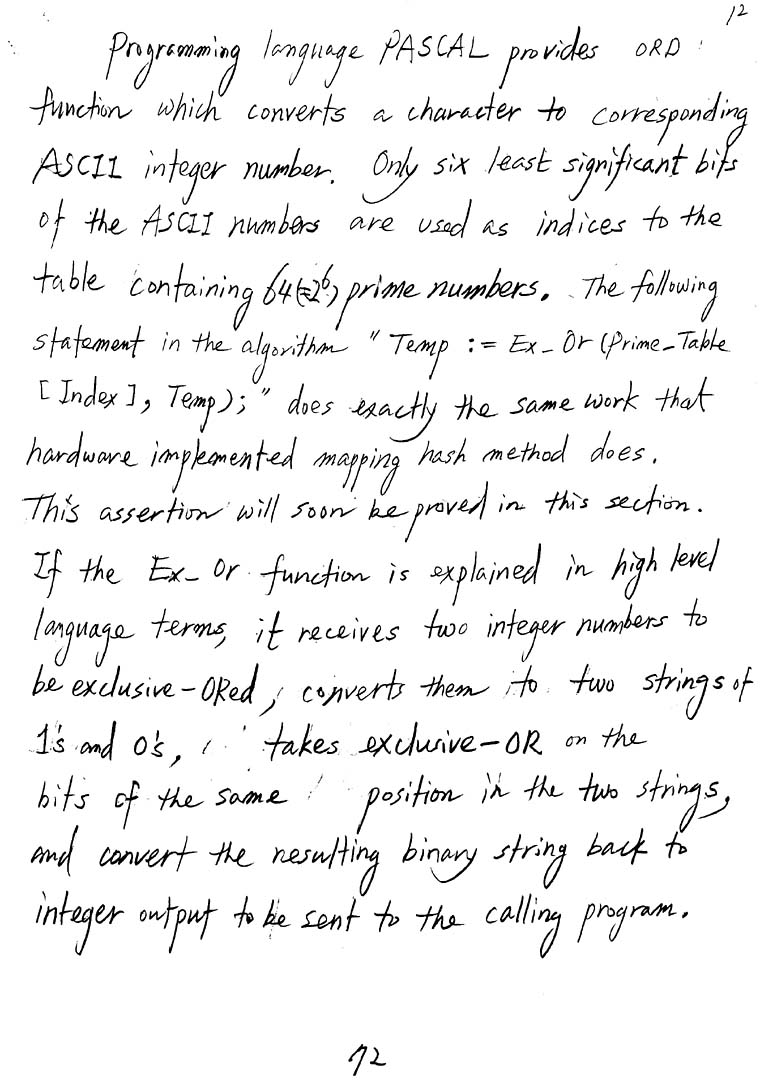 12
Programming language PASCAL provides ORD
function which converts a character to corresponding
ASCII integer number. Only six least significant bits
of the ASCII numbers are used as indices to the
table containing 64(=2⁶) prime numbers. The following
statement in the algorithm "Temp := Ex_Or (Prime_Table
[Index], Temp);" does exactly the same work that
hardware implemented mapping hash method does.
This assertion will soon be proved in this section.
If the Ex_Or function is explained in high level
language terms, it receives two integer numbers to
be exclusive-ORed, converts them to two strings of
1's and 0's, takes exclusive-OR on the
bits of the same position in the two strings,
and convert the resulting binary string back to
integer output to be sent to the calling program.
72